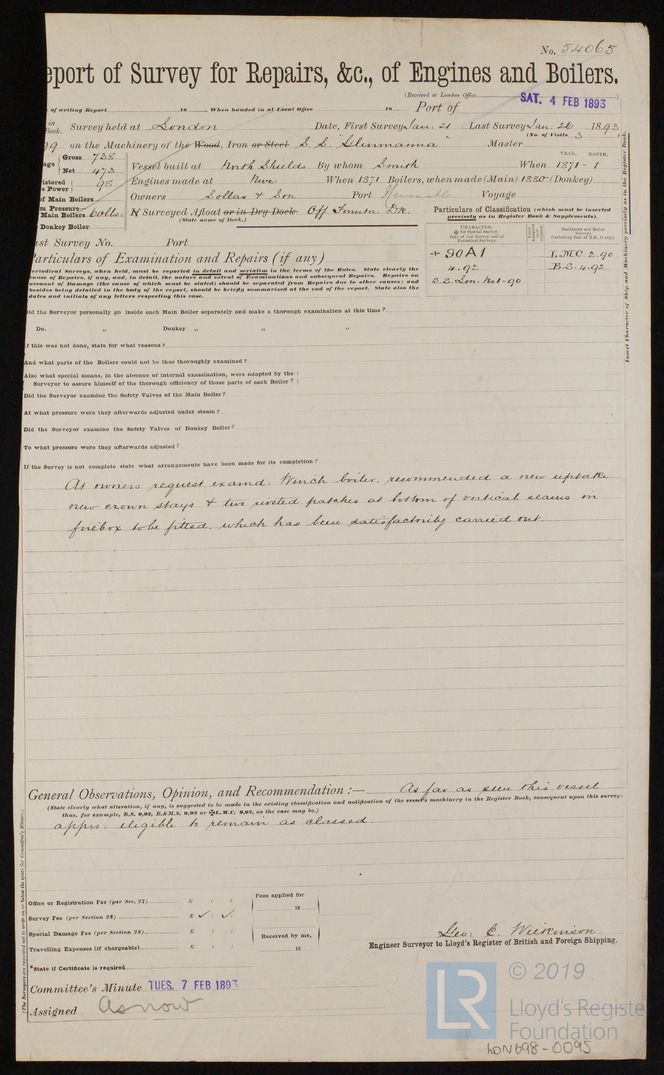 No. 54065
eport of Survey for Repairs, &c., of Engines and Boilers.
(Received at London Office
SAT. 4 FEB 1893
of writing Report 18 When handed in at Local Office 18 Port of
in Book. Survey held at London Date, First Survey Jan: 21 Last Survey Jan: 26 1893
(No. of Visits 3 )
on the Machinery of the Wood, Iron or Steel S.S. "Glenmanna" Master
Gross 738
Net 473
Vessel built at North Shields By whom Smith When 1871-1
istered
s Power 98
Engines made at Nwc: When 1871 Boilers, when made (Main) 1880 (Donkey)
of Main Boilers
Owners Dollas & Son Port Newcastle Voyage
m Pressure
Main Boilers 60lbs.
Donkey Boiler
If Surveyed Afloat or in Dry Dock Off Dk.
(State name of Dock.)
Particulars of Classification (which must be inserted
precisely as in Register Book & Supplements).
CHARACTER.
YEAR. MONTH.
+ 90A1 L.M.C. 2.90
4.92 B.S. 4.92
S.S. Lon: No1-90
ast Survey No. Port
articulars of Examination and Repairs (if any)
eriodical Surveys, when held, must be reported in detail and seriatim in the terms of the Rules. State clearly the
cause of Repairs, if any, and, in detail, the nature and extent of Examinations and subsequent Repairs. Repairs on
account of Damage (the cause of which must be stated) should be separated from Repairs due to other causes; and
besides being detailed in the body of the report, should be briefly summarised at the end of the report. State also the
dates and initials of any letters respecting this case.
Insert Character of Ship and Machinery precisely as in the Register Book.
Did the Surveyor personally go inside each Main Boiler separately and make a thorough examination at this time?
Do. „ Donkey „ „ „
If this was not done, state for what reasons?
And what parts of the Boilers could not be thus thoroughly examined?
Also what special means, in the absence of internal examination, were adopted by the
Surveyor to assure himself of the thorough efficiency of those parts of each Boiler?
Did the Surveyor examine the Safety Valves of the Main Boiler?
At what pressure were they afterwards adjusted under steam?
Did the Surveyor examine the Safety Valves of Donkey Boiler?
To what pressure were they afterwards adjusted?
If the Survey is not complete state what arrangements have been made for its completion?
At owners request examd: Winch boiler, recommended a new uptake
new crown stays & two riveted patches at bottom of vertical seams in
firebox to be fitted, which has been satisfactorily carried out.
General Observations, Opinion, and Recommendation :— As far as seen this vessel
(State clearly what alteration, if any, is suggested to be made in the existing classification and notification of the vessel's machinery in the Register Book, consequent upon this survey;
thus, for example, B.S. 9,92, B.&M.S. 9,92 or L.M.C. 9,92, as the case may be.)
apprs: eligible to remain as classed.
Office or Registration Fee (per Sec. 27) £ : :
Survey Fee (per Section 28) £ : :
Special Damage Fee (per Section 28) £ : :
Travelling Expenses (if chargeable) £ : :
Fees applied for
18
Received by me,
18
Geo: C. Wilkinson
Engineer Surveyor to Lloyd's Register of British and Foreign Shipping.
*State if Certificate is required
Committee's Minute TUES. 7 FEB 1893
Assigned As now
(The Surveyors are requested not to write on or below the space for Committee's Minute.)
LR
© 2019
Lloyd's Register
Foundation
LON698-0095